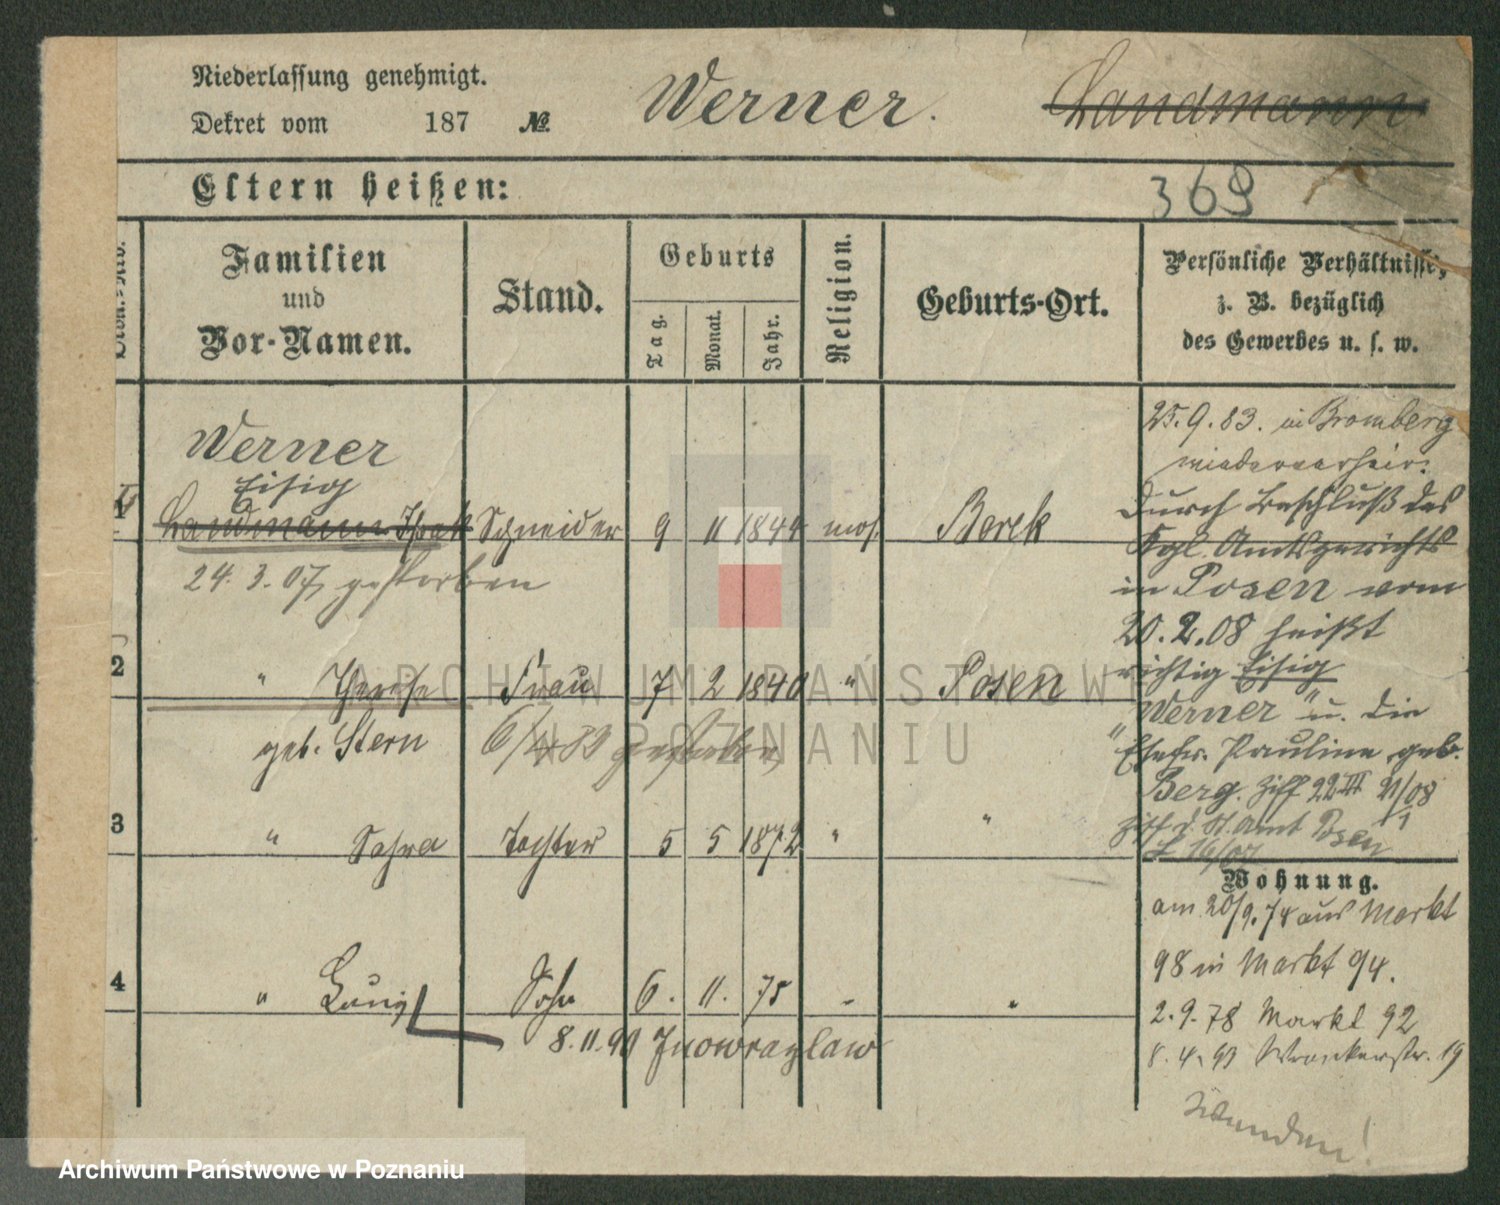 Niederlassung genehmigt.
Dekret vom 187 No.
Werner. Landmann
Eltern heißen:
369
Familien
und
Vor-Namen.
Stand.
Geburts
Tag. Monat. Jahr.
Religion.
Geburts-Ort.
Persönliche Verhältnisse,
z. B. bezüglich
des Gewerbes u. s. w.
Werner
Eisig
1 Landmann Isaak Schneider 9 11 1844 mos. Berek
24. 3. 07 gestorben
2 " Therese Frau 7 2 1840 " Posen
geb. Stern 6/4 83 gestorben
3 " Sahra Tochter 5 5 1872 " "
4 " Sohn 6. 11. 75 " "
8. 11. 90 Inowrazlaw
25. 9. 83. in Bromberg
wiederverheir.
Durch Beschluß des
Kgl. Amtsgerichts
in Posen vom
20. 2. 08 heißt
richtig Eisig
"Werner" u. die
"Ehefr. Pauline geb.
Berg. Ziff 22 III 21/08
St. Amt Posen
Wohnung.
am 20/9. 74 aus Markt
98 in Markt 94.
2. 9. 78 Markt 92
8. 4. 93 Wronkerstr. 19
Wenden!
ARCHIWUM PAŃSTWOWE
W POZNANIU
Archiwum Państwowe w Poznaniu